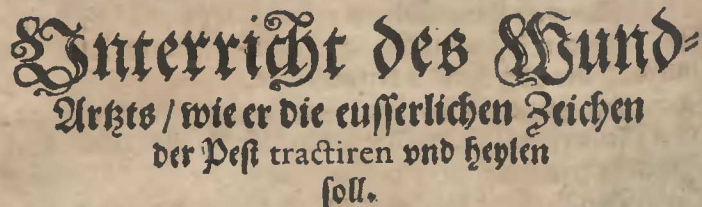 Unterricht des Wund-
Artzts / wie er die eusserlichen Zeichen
der Pest tractiren vnd heylen
soll.